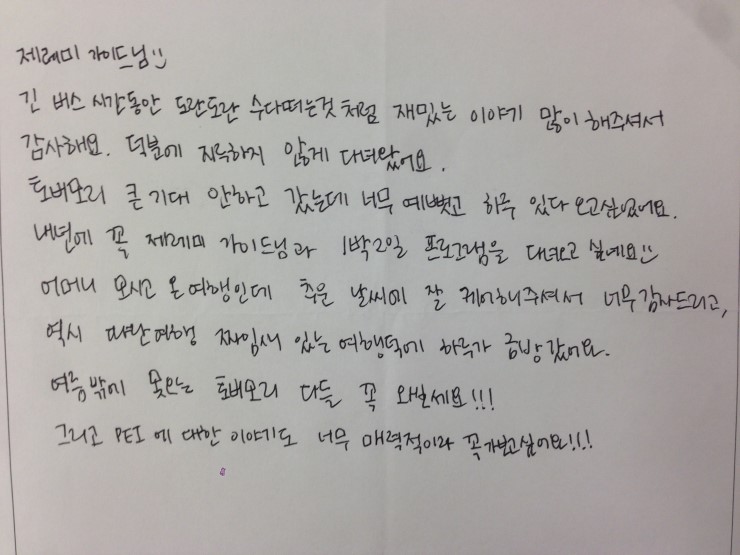 제레미 가이드님
긴 버스 시간동안 도란도란 수다떠는것 처럼 재밌는 이야기 많이 해주셔서
감사해요. 덕분에 지루하지 않게 다녀왔어요.
토버모리 큰 기대 안하고 갔는데 너무 예뻤고 하루 있다 오고싶었어요.
내년에 꼭 제레미 가이드님과 1박2일 프로그램을 다녀오고 싶네요
어머니 모시고 온 여행인데 추운 날씨에 잘 케어해주셔서 너무감사드리고,
역시 파란여행 짜임새 있는 여행덕에 하루가 금방갔어요.
여름밖에 못오는 토버모리 다들 꼭 와보세요!!!
그리고 PEI 에 대한 이야기도 너무 매력적이라 꼭가보고싶어요!!!